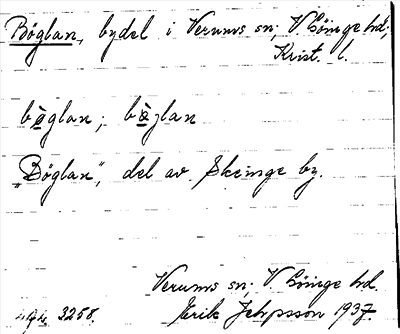 Böglan, bydel i Verums sn; V. Göinge hd;
Krist. l.
bø̀glan; bø̀glan
„Böglan", del av Skeinge by.
Verums sn; V. Göinge hd.
3258. Erik Jeppsson 1937.